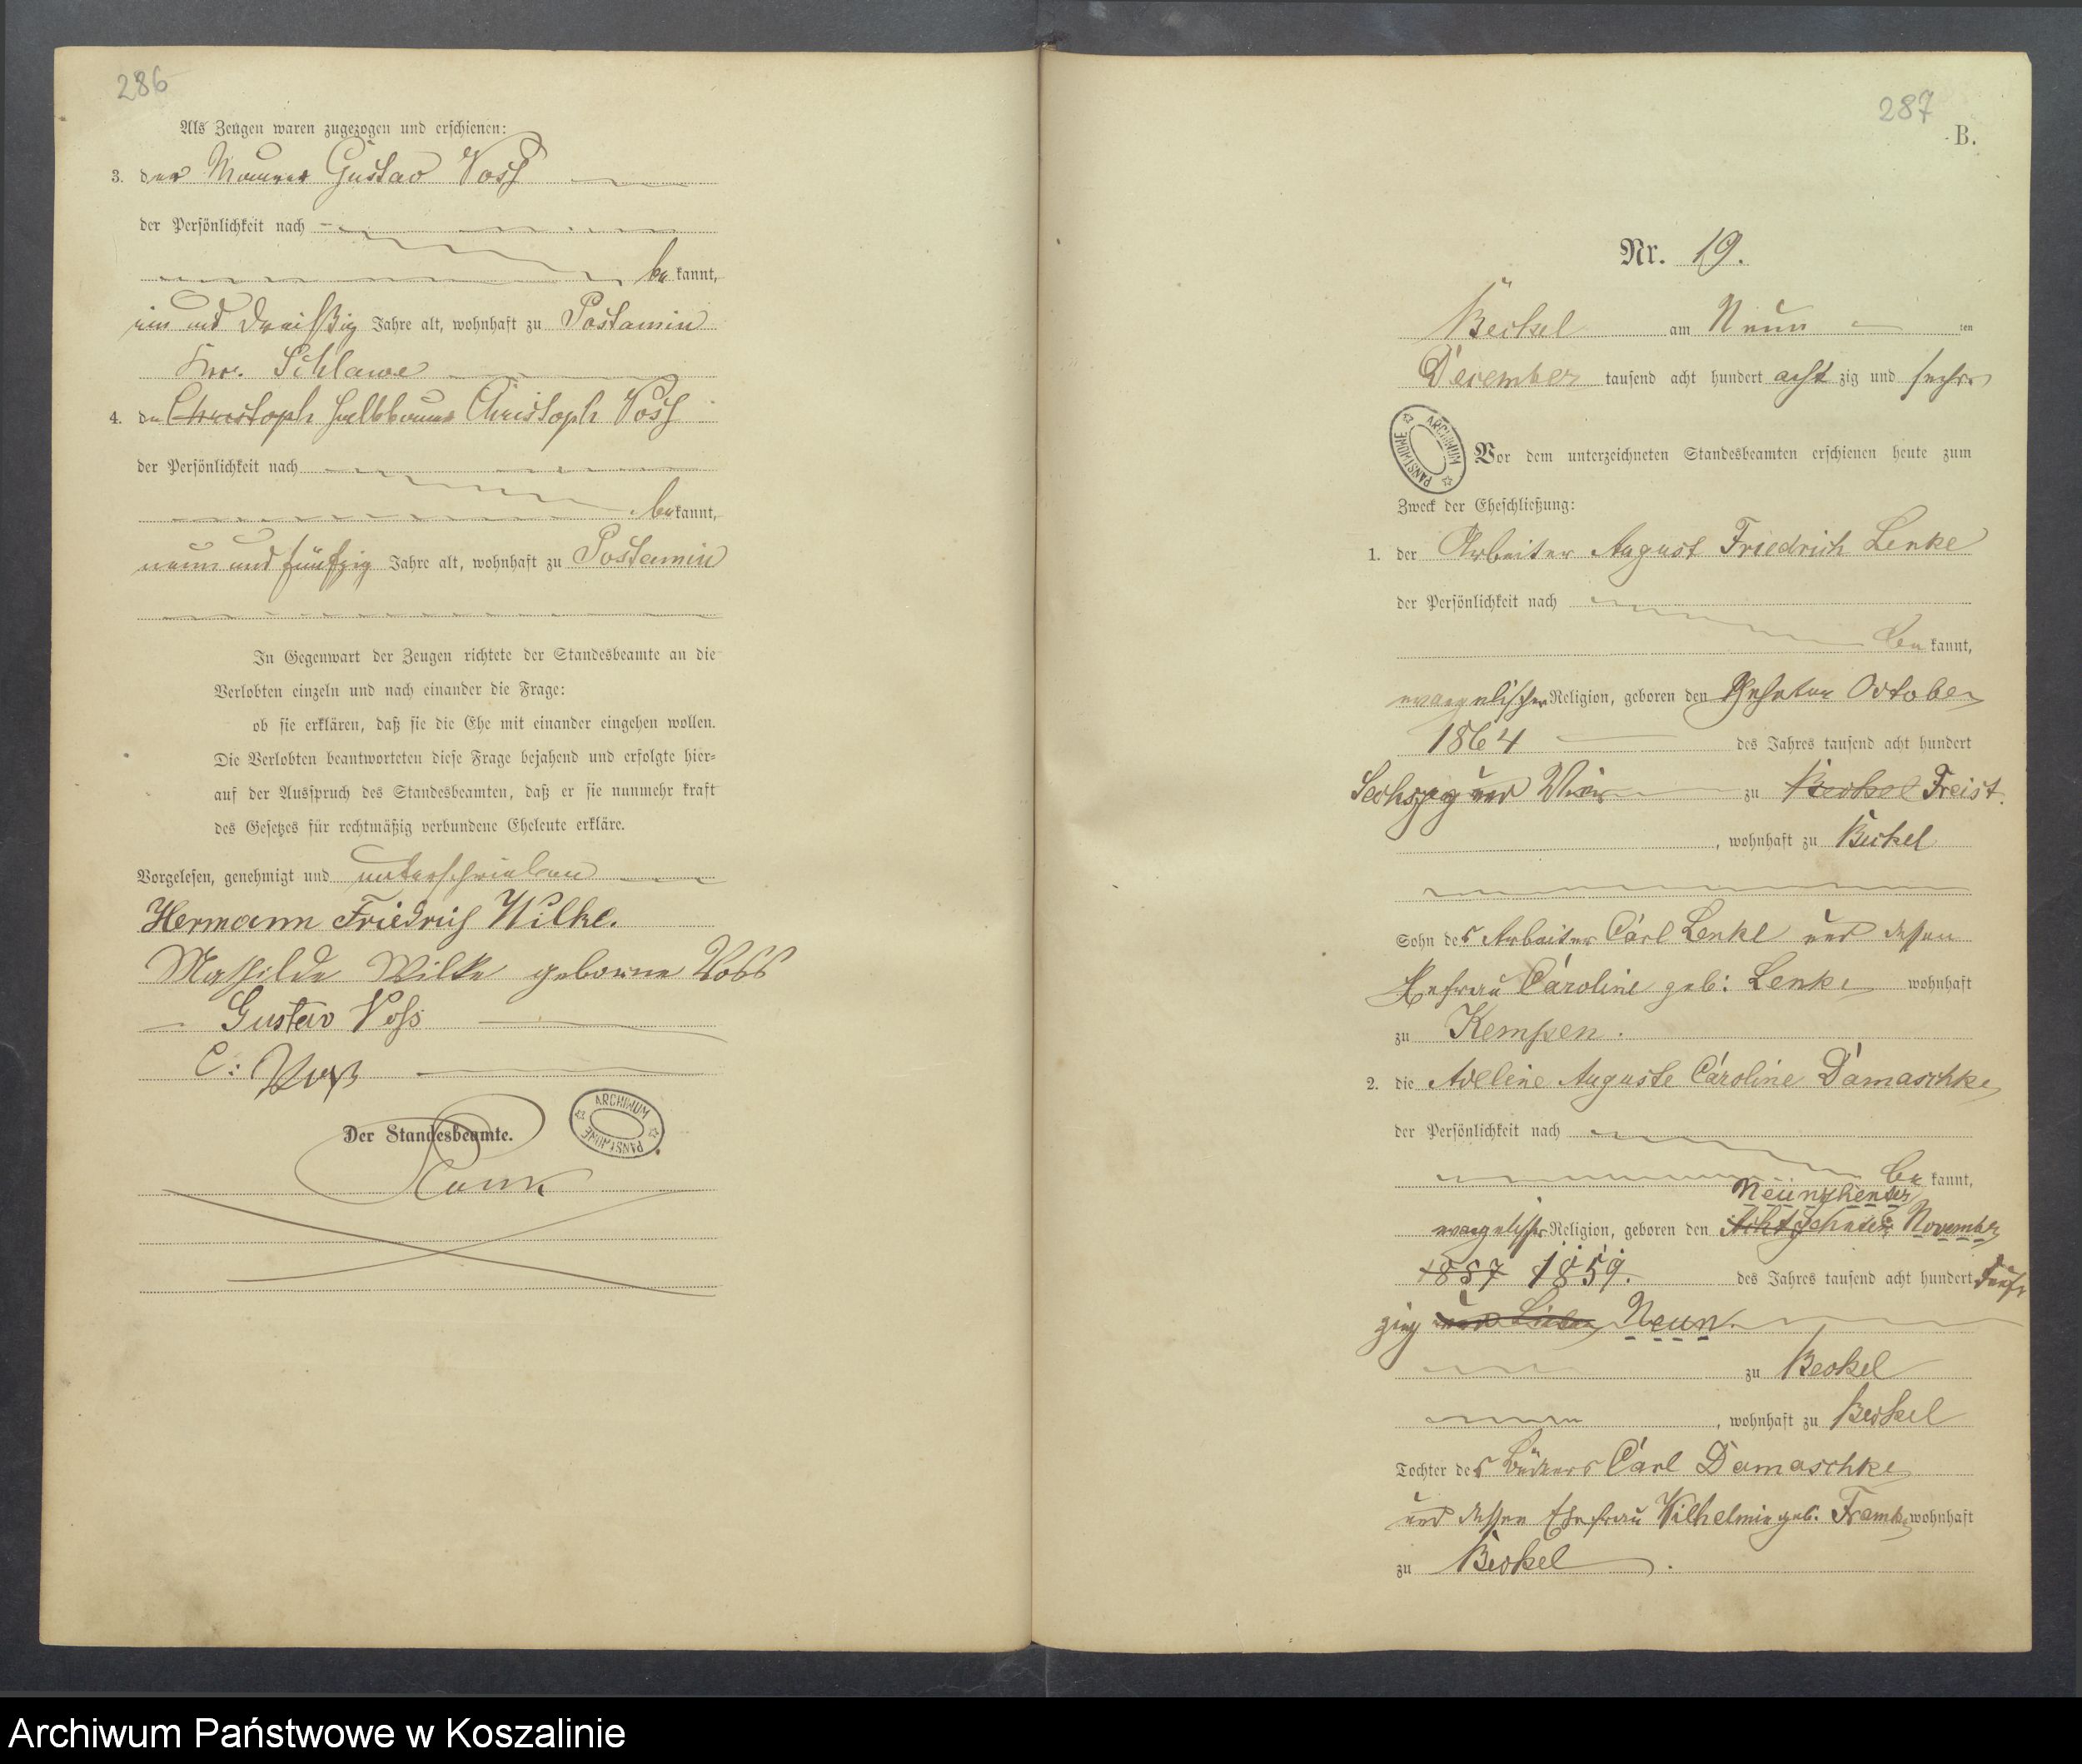 286
Als Zeugen waren zugezogen und erschienen:
3. der Maurer Gustav Voß
der Persönlichkeit nach
be kannt,
ein und dreißig Jahre alt, wohnhaft zu Postamin
Kr. Schlawe
4. der Christoph Halbbauer Christoph Voß
der Persönlichkeit nach
be kannt,
neun und fünfzig Jahre alt, wohnhaft zu Postamin
In Gegenwart der Zeugen richtete der Standesbeamte an die
Verlobten einzeln und nach einander die Frage:
ob sie erklären, daß sie die Ehe mit einander eingehen wollen.
Die Verlobten beantworteten diese Frage bejahend und erfolgte hier-
auf der Ausspruch des Standesbeamten, daß er sie nunmehr kraft
des Gesetzes für rechtmäßig verbundene Eheleute erkläre.
Vorgelesen, genehmigt und unterschrieben
Hermann Friedrich Wilke.
Mathilde Wilke geborne Voss
Gustav Voß
C: Voß
Der Standesbeamte.
ARCHIWUM PAŃSTWOWE
287
B.
Nr. 19.
Beckel am Neun ten
December tausend acht hundert acht zig und sechs
ARCHIWUM PAŃSTWOWE
Vor dem unterzeichneten Standesbeamten erschienen heute zum
Zweck der Eheschließung:
1. der Arbeiter August Friedrich Lenke
der Persönlichkeit nach
be kannt,
evangelischer Religion, geboren den Zehnten October
1864 des Jahres tausend acht hundert
Sechszig und Vier zu Beckel Freist.
, wohnhaft zu Beckel
Sohn des Arbeiter Carl Lenke und dessen
Ehefrau Caroline geb: Lenke wohnhaft
zu Kempen.
2. die Adeline Auguste Caroline Damaschke
der Persönlichkeit nach
be kannt,
Neunzehnten
evangelischer Religion, geboren den Achtzehnten November
1857 1859. des Jahres tausend acht hundert Fünf
zig und Sieben Neun
zu Beckel
, wohnhaft zu Beckel
Tochter des Carl Damaschke
und dessen Ehefrau Wilhelmine geb. wohnhaft
zu Beckel.
Archiwum Państwowe w Koszalinie